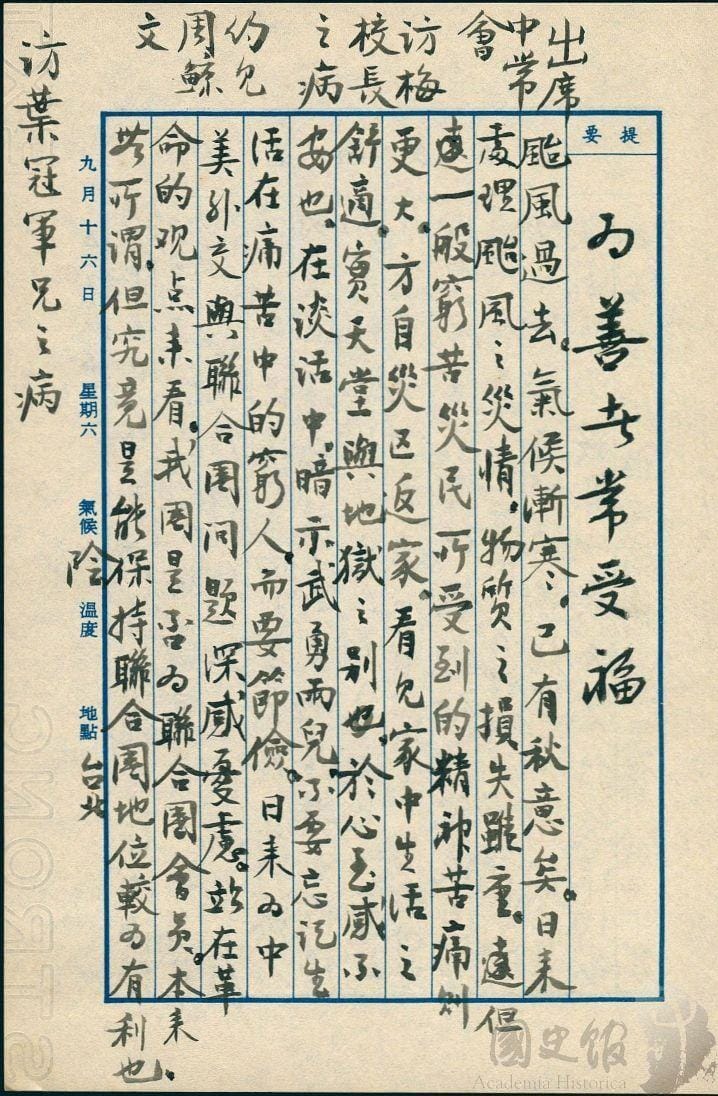 出席
中常
會
訪梅
校長
之病
約見
周鯨
文
提要
為善者常受福
颱風過去。氣候漸寒。已有秋意矣。日來
處理颱風之災情。物質之損失雖重。遠但
遠一般窮苦災民所受到的精神苦痛則
更大。方自災区返家。看見家中生活之
舒適。實天堂與地獄之別也。於心至感不
安也。在淡活中。暗示武勇兩兒不要忘記生
活在痛苦中的窮人。而要節儉。日來為中
美外交與聯合國问題深感憂慮。站在革
命的观点來看。我國是否為聯合國會員。本來
無所謂。但究竟是能保持聯合國地位較為有利也。
九月十六日 星期六 氣候 陰 溫度 地點 台北
訪葉冠軍兄之病
國史館
Academia Historica